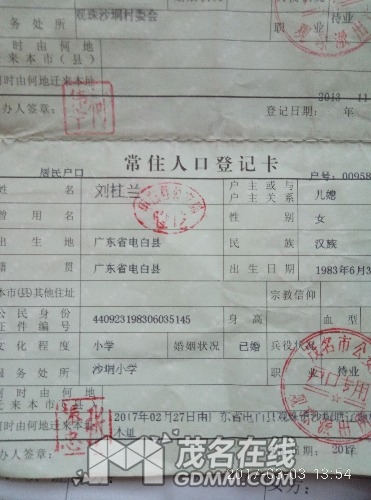 观珠沙垌村委会
务处所 职业 待业
时由何地
迁来本市(县)
何时由何地迁来本址
办人签章: 登记日期: 年
2013 11
常住人口登记卡
居民户口 户号: 00958
姓名 刘桂兰 户主或与户主关系 儿媳
曾用名 性别 女
出生地 广东省电白县 民族 汉族
籍贯 广东省电白县 出生日期 1983年6月3
本市(县)其他住址 宗教信仰
公民身份证件编号 440923198306035145 身高 血型
文化程度 小学 婚姻状况 已婚 兵役状况
服务处所 沙垌小学 职业 待业
何时由何地迁来本市
2017年02月27日由广东省电白县观珠
办人签章: 登记日期: 20 年
茂名市公
户口专用
茂名网
www.mm111.net
2017-03-03 13:54